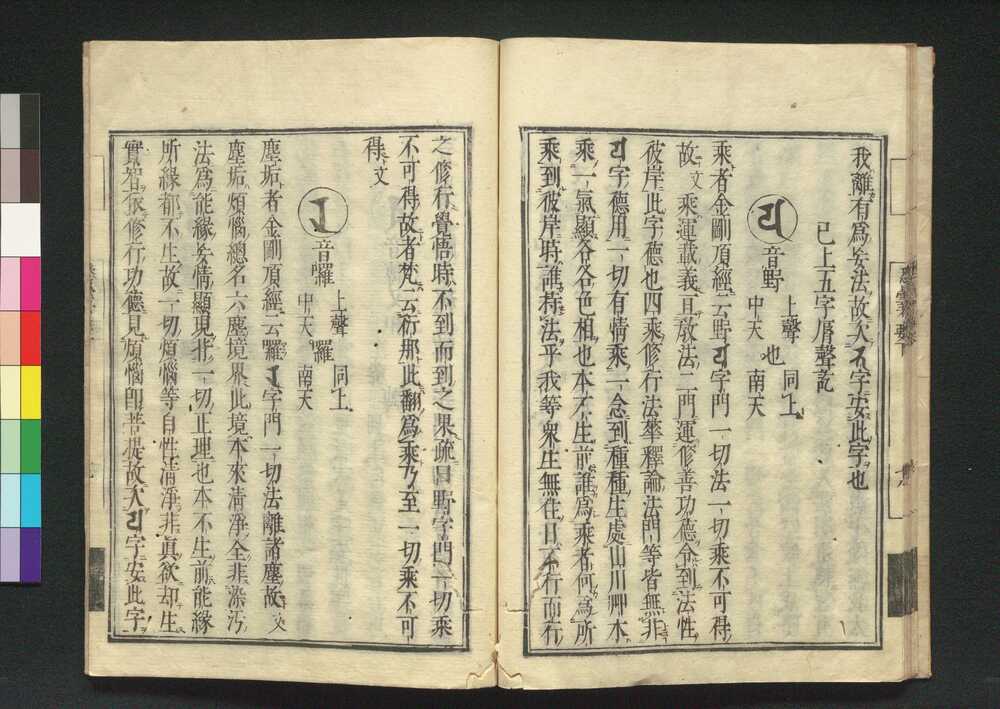 我離有爲妄法故次𑖦字安此字也
已上五字脣聲訖
𑖧 音野 上聲 中天 也 同上 南天
乘者金剛頂經云野𑖧字門一切法一切乘不可得
故文乘運載義且敎法二門運修善功德令到法性
彼岸此字德也四乘修行法華釋論法門等皆無非
𑖧字德用一切有情乘一念到種種生處山川艸木
乘一氣顯各各色相也本不生前誰爲乘者何爲所
乘到彼岸時誰持法乎我等衆生無住且不行而行
之修行覺悟時不到而到之果疏曰野字門一切乘
不可得故者梵云衍那此翻爲乘乃至一切乘不可
得文
𑖨 音囉 上聲 中天 囉 同上 南天
塵垢者金剛頂經云囉𑖨字門一切法離諸塵故文
塵垢煩惱總名六塵境界此境本來淸淨全非染汚
法爲能緣妄情顯現非一切正理也本不生前能緣
所緣都不生故一切煩惱等自性淸淨非眞欲却生
實智依修行功德見煩惱卽菩提故次𑖧字安此字